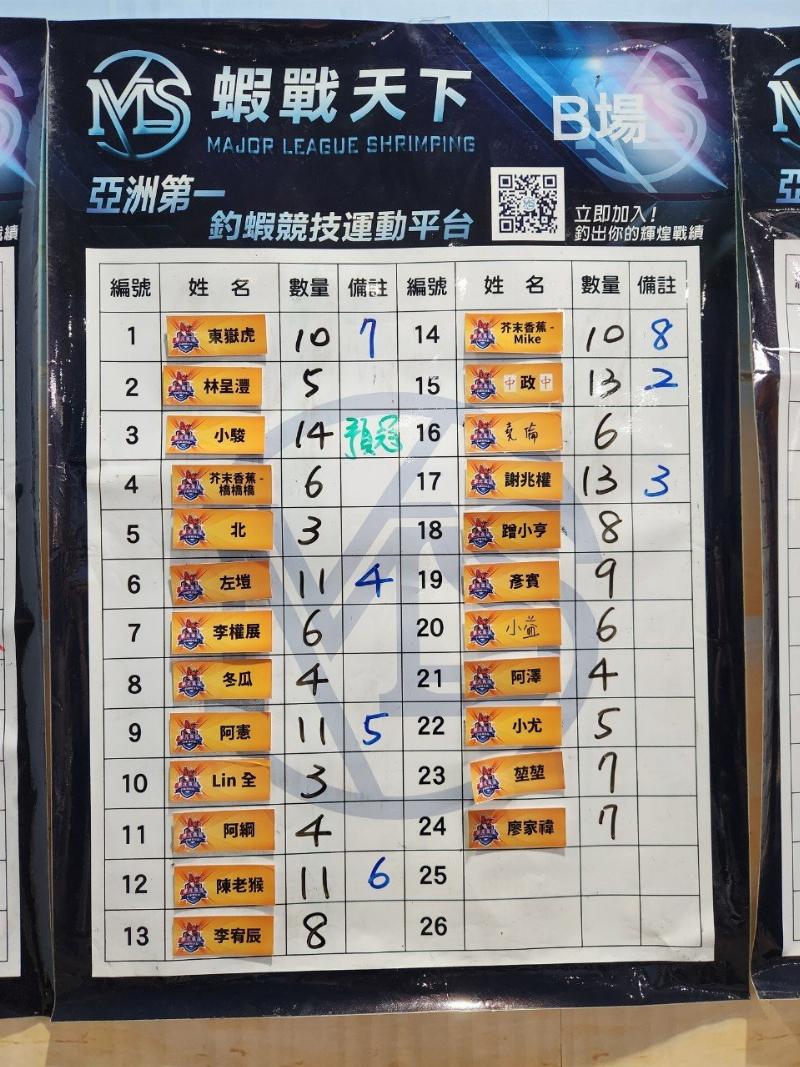 MLS 蝦戰天下
MAJOR LEAGUE SHRIMPING
B場
亞洲第一
釣蝦競技運動平台
立即加入!
釣出你的輝煌戰績
編號 姓名 數量 備註 編號 姓名 數量 備註
1 東嶽虎 10 7 14 芥末香蕉-Mike 10 8
2 林呈灃 5 15 中政中 13 2
3 小駿 14 預冠 16 堯倫 6
4 芥末香蕉-橋橋橋 6 17 謝兆權 13 3
5 北 3 18 蹭小亨 8
6 左塏 11 4 19 彥賓 9
7 李權展 6 20 小益 6
8 冬瓜 4 21 阿澤 4
9 阿憲 11 5 22 小尤 5
10 Lin 全 3 23 堃堃 7
11 阿綱 4 24 廖家禕 7
12 陳老猴 11 6 25
13 李宥辰 8 26